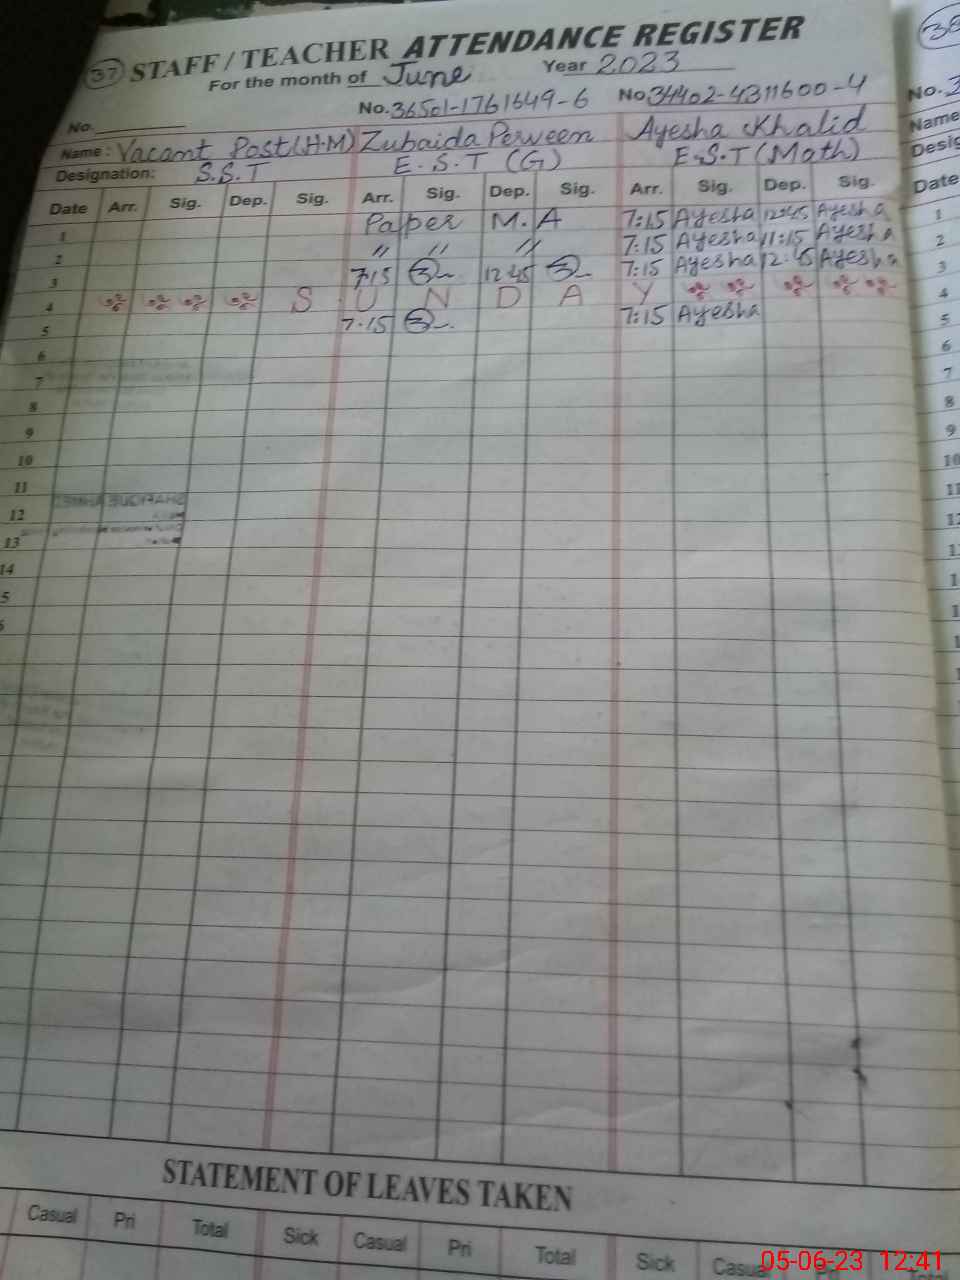 37 STAFF / TEACHER ATTENDANCE REGISTER
For the month of June Year 2023
No. No. 36501-1761649-6 No 34402-4311600-4
Name: Vacant Post (H.M) Zubaida Perveen Ayesha Khalid
Designation: S.S.T E.S.T (G) E.S.T (Math)
Date Arr. Sig. Dep. Sig. Arr. Sig. Dep. Sig. Arr. Sig. Dep. Sig.
1 Paper M.A 7:15 Ayesha 12:45 Ayesha
2 " " " 7:15 Ayesha 11:15 Ayesha
3 7:15 12:45 7:15 Ayesha 12:45 Ayesha
4 S U N D A Y
5 7:15 7:15 Ayesha
6
7
8
9
10
11
12
13
14
5
6
STATEMENT OF LEAVES TAKEN
Casual Pri Total Sick Casual Pri Total Sick Casual Total
38
No. 3
Name
Desig
Date
1
2
3
4
5
6
7
8
9
10
11
12
05-06-23 12:41